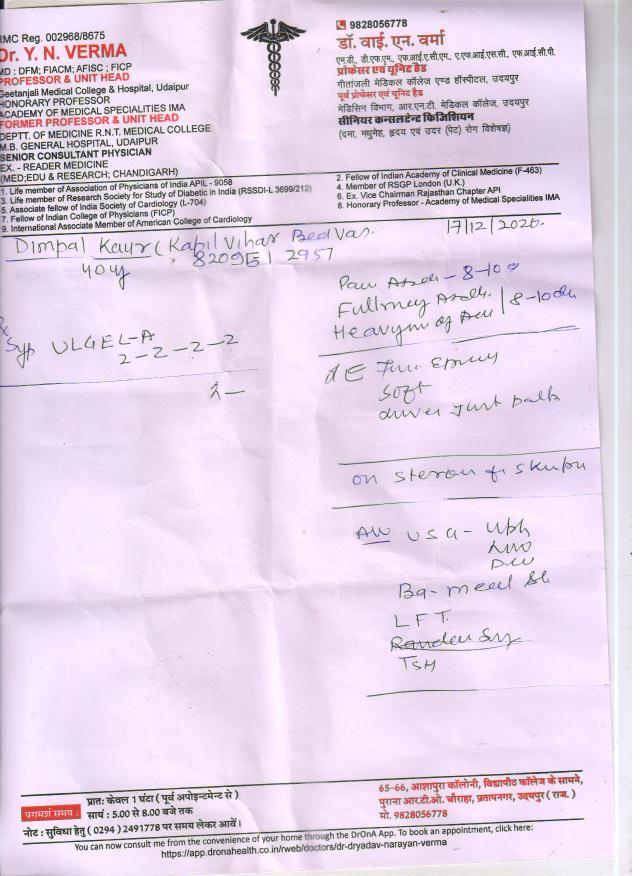 RMC Reg. 002968/8675
Dr. Y. N. VERMA
MD : DFM; FIACM; AFISC ; FICP
PROFESSOR & UNIT HEAD
Geetanjali Medical College & Hospital, Udaipur
HONORARY PROFESSOR
ACADEMY OF MEDICAL SPECIALITIES IMA
FORMER PROFESSOR & UNIT HEAD
DEPTT. OF MEDICINE R.N.T. MEDICAL COLLEGE
M.B. GENERAL HOSPITAL, UDAIPUR
SENIOR CONSULTANT PHYSICIAN
EX. - READER MEDICINE
(MED;EDU & RESEARCH; CHANDIGARH)
9828056778
डॉ. वाई. एन. वर्मा
एम.डी., डी.एफ.एम., एफ.आई.ए.सी.एम., ए.एफ.आई.एस.सी., एफ.आई.सी.पी.
प्रोफेसर एवं यूनिट हैड
गीतांजली मेडिकल कॉलेज एण्ड हॉस्पीटल, उदयपुर
पूर्व प्रोफेसर एवं यूनिट हैड
मेडिसिन विभाग, आर.एन.टी. मेडिकल कॉलेज, उदयपुर
सीनियर कन्सलटेन्ट फिजिशियन
(दमा, मधुमेह, हृदय एवं उदर (पेट) रोग विशेषज्ञ)
1. Life member of Association of Physicians of India APIL - 9058
3. Life member of Research Society for Study of Diabetic in India (RSSDI-L 3699/212)
5. Associate fellow of India Society of Cardiology (L-704)
7. Fellow of Indian College of Physicians (FICP)
9. International Associate Member of American College of Cardiology
2. Fellow of Indian Academy of Clinical Medicine (F-463)
4. Member of RSGP London (U.K.)
6. Ex. Vice Chairman Rajasthan Chapter API
8. Honorary Professor - Academy of Medical Specialities IMA
17/12/2020.
Dimpal Kaur (Kapil Vihar Bedvas.
820951 2957
40y
8-10
8-10
Heavyn of
Syp ULGEL-A
2-2-2-2
soft
on
USG-
Ba- meal
LFT
TSH
परामर्श समय :
प्रात: केवल 1 घंटा ( पूर्व अपोइन्टमेन्ट से )
सायं : 5.00 से 8.00 बजे तक
नोट : सुविधा हेतु ( 0294 ) 2491778 पर समय लेकर आवें।
65-66, आज्ञापुरा कॉलोनी, विद्यापीठ कॉलेज के सामने,
पुराना आर.टी.ओ. चौराहा, प्रतापनगर, उदयपुर ( राज. )
मो. 9828056778
You can now consult me from the convenience of your home through the DrOnA App. To book an appointment, click here:
https://app.dronahealth.co.in/rweb/doctors/dr-dryadav-narayan-verma